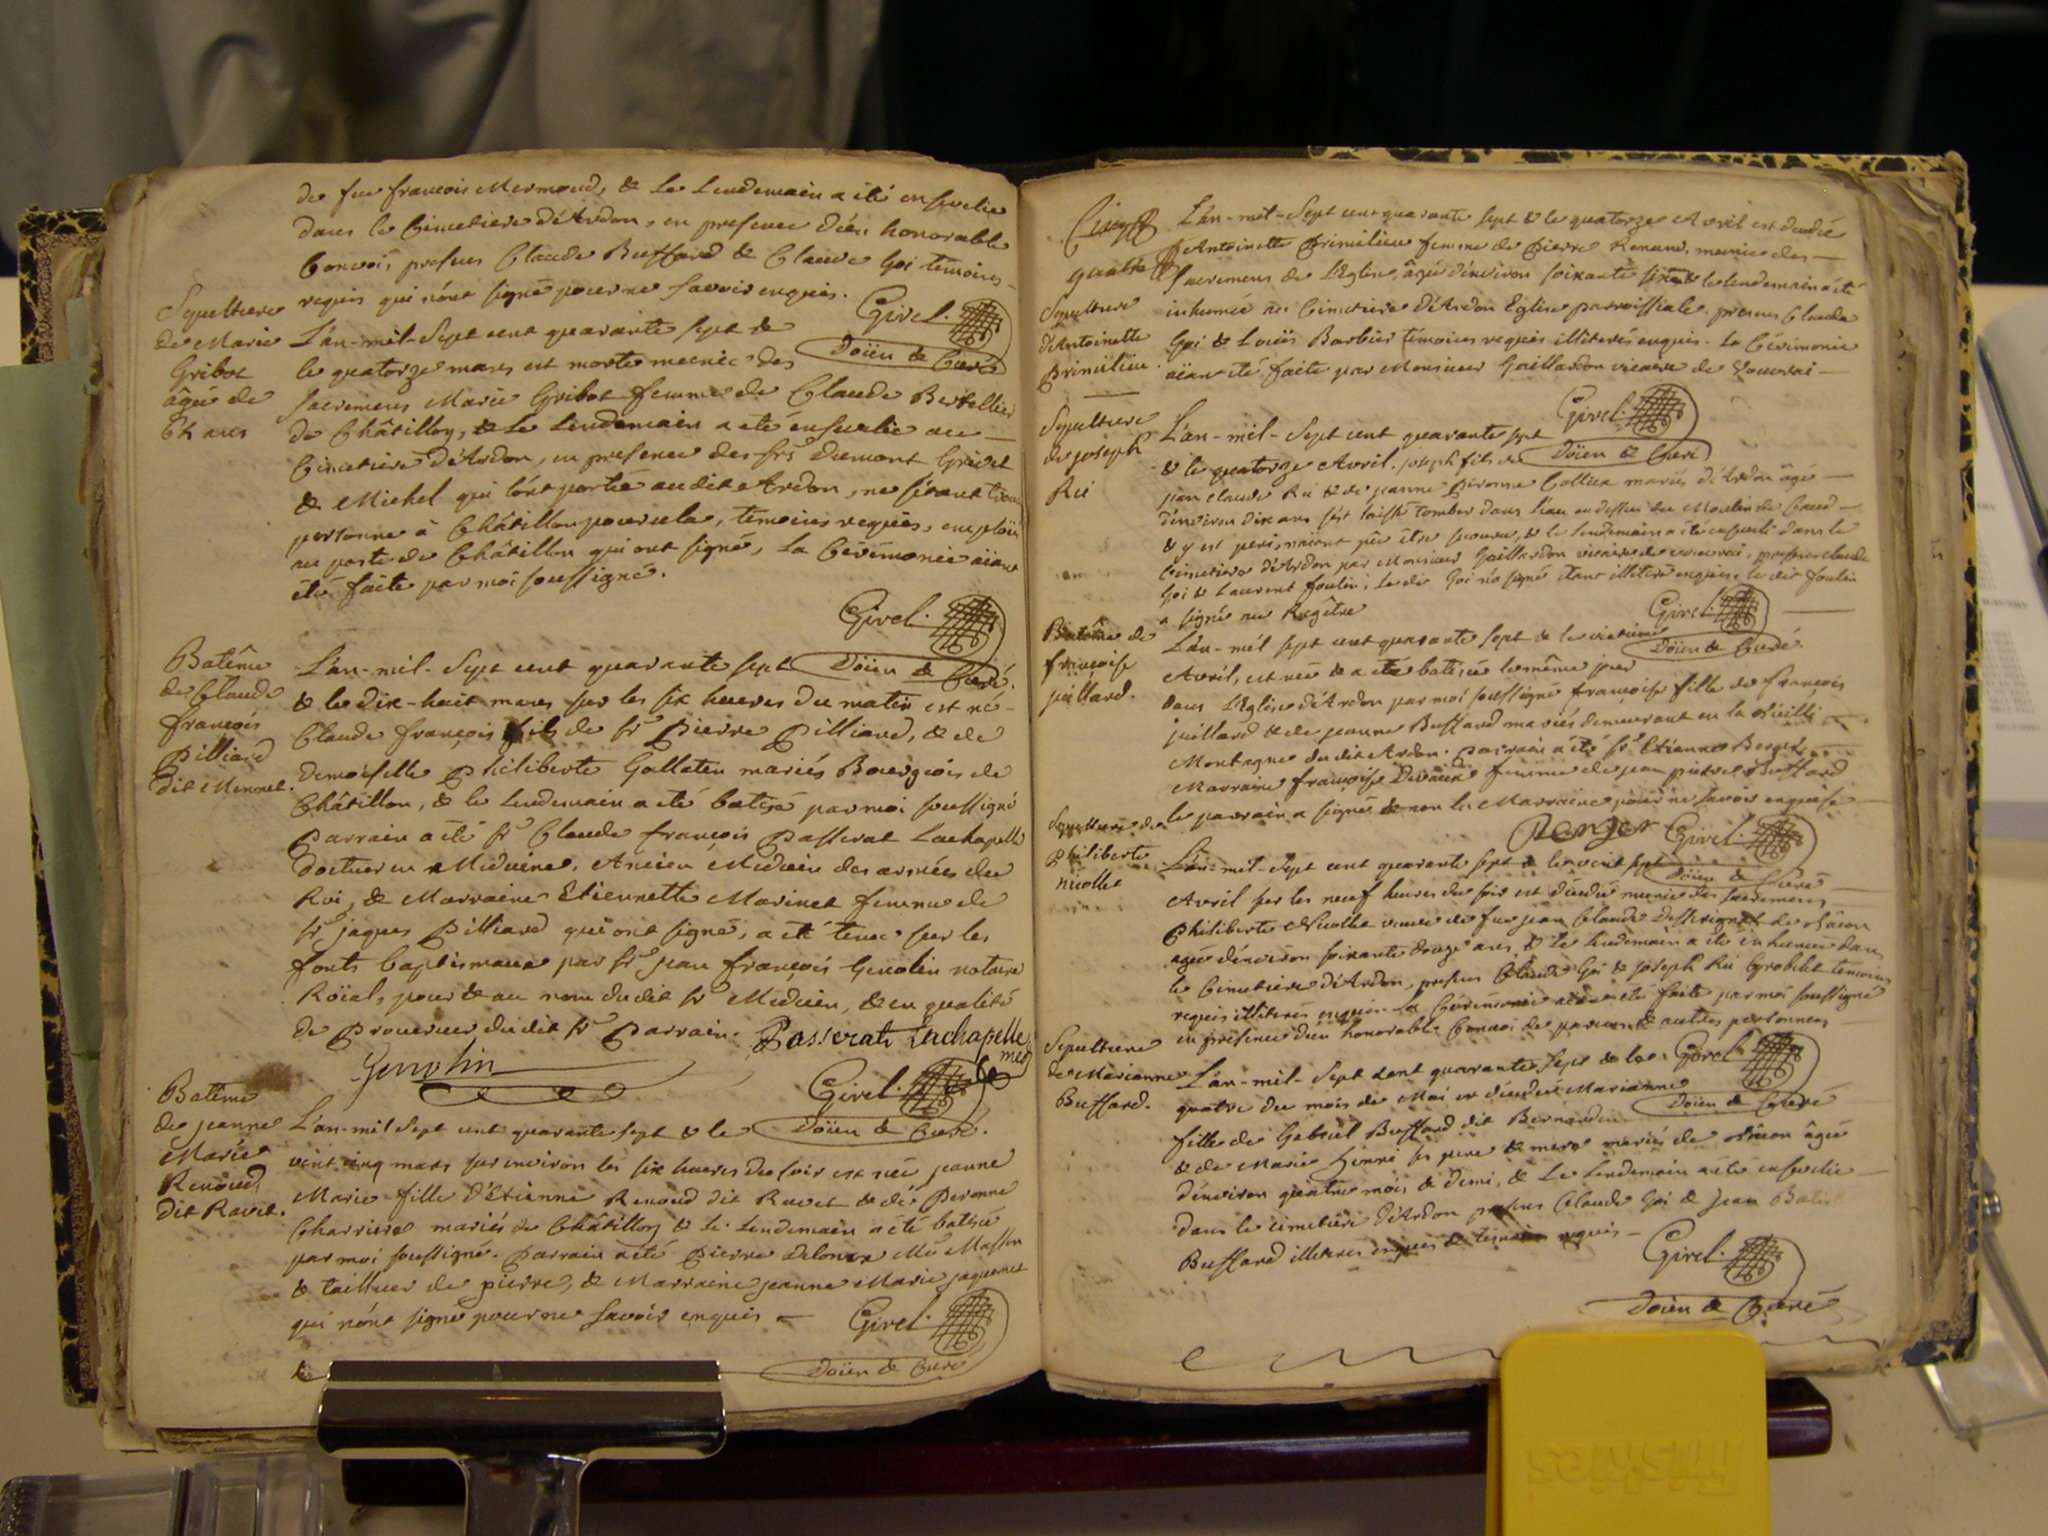 de feu françois Mermoud, & Le Lendemain a été ensevelie
dans le Cimetiere d'Ardon, en presence d'un honorable
Convoi, presens Claude Buffard & Claude Goi témoins
requis qui n'ont signé pour ne savoir enquis.
Girel.
Doïen & Curé
Sepulture
de Marie
Gribot
âgée de
ans
L'an-mil-Sept cent quarante sept &
le quatorze mars est morte munie des
sacremens Marie Gribot femme de Claude Bertellier
de Châtillon, & Le Lendemain a été ensevelie au
Cimetiere d'Ardon, en presence des srs Dumont Grivet
& Michel qui l'ont portée audit Ardon, ne s'étant
personne à Châtillon pour cela, témoins requis, emploïés
au poste de Châtillon qui ont signé, La Cérémonie aïant
été faite par moi soussigné.
Girel.
Doïen & Curé.
Batême
de Claude
françois
Pilliard
dit Monnet.
L'an-mil-Sept cent quarante sept
& le dix-huit mars sur les six heures du matin est né
Claude françois fils de sr Pierre Pilliard, & de
demoiselle Philiberte Gallatin mariés Bourgeois de
Châtillon, & le Lendemain a été batisé par moi soussigné
Parrain a été sr Claude françois Passerat Lachapelle
docteur en Médecine, Ancien Médecin des armées du
Roi, & Marraine Etiennette Marinet femme de
sr jaques Pilliard qui ont signé, a été tenu sur les
fonts baptismaux par sr jean françois Genolin notaire
Roïal, pour & au nom dudit sr Médecin, & en qualité
de Procureur dudit sr Parrain. Passerat Lachapelle
Genolin
Girel.
Doïen & Curé.
Batême
de jeanne
Marie
Renoud
dit Ravet.
L'an-mil Sept cent quarante sept & le
vint cinq mars sur environ les six heures du soir est née jeanne
Marie fille d'Etienne Renoud dit Ravet & de Peronne
Charriere mariés de Châtillon & le Lendemain a été batisée
par moi soussigné. Parrain a été Pierre Delonge Me Masson
& tailleur de pierre, & Marraine jeanne Marie jaquemet
qui n'ont signé pour ne savoir enquis
Girel.
Doïen & Curé
quatre
Sepulture
d'Antoinette
Primilieu
L'an-mil-Sept cent quarante sept & le quatorze Avril est decedée
Antoinette Primilieu femme de Pierre Renaud, munie des
sacremens de L'Eglise, âgée d'environ soixante & le lendemain a été
inhumée au Cimetiere d'Ardon Eglise paroissiale, presens Claude
Goi & Louis Barbier témoins requis illiterés enquis. La Cérémonie
aïant été faite par Monsieur Gaillardon vicaire de
Girel.
Doïen & Curé
Sepulture
de joseph
Rei
L'an-mil-Sept cent quarante sept
& le quatorze Avril. joseph fils de
jean claude Rei & de jeanne Peronne Collier mariés d'Ardon âgé
d'environ dix ans s'est laissé tomber dans l'eau au dessus du Moulin de
& y est peri, n'aiant pû être secouru, & le lendemain a été enseveli dans le
Cimetiere d'Ardon par Monsieur Gaillardon vicaire de, presens claude
Goi & Laurent foulin; Ledit Goi n'a signé étant illiteré enquis, le dit foulin
a signé au Regître
Girel.
Doïen & Curé.
Batême de
françoise
juillard.
L'an-mil sept cent quarante sept & le
Avril, est née & a été batisée le même jour
dans L'Eglise d'Ardon par moi soussigné françoise fille de françois
juillard & de jeanne Buffard mariés demeurant en la
Montagne dudit Ardon. Parrain a été sr Etienne Berger
Marraine françoise femme de jean pierre Buffard
le parrain a signé & non la Marraine pour ne savoir enquise
Berger Girel.
Doïen & Curé
Sepulture de
Philiberte
nicollet
L'an-mil-Sept cent quarante sept & le vint sept
Avril sur les neuf heures du soir est décedée munie des sacremens
Philiberte Nicollet veuve de feu jean Claude
agée d'environ soixante douze ans, & Le lendemain a été inhumée dans
le Cimetiere d'Ardon, presens Claude Goi & joseph Rei témoins
requis illiterés enquis. La Cérémonie aïant été faite par moi soussigné
en presence d'un honorable Convoi de parens & autres personnes
Girel.
Doïen & Curé
Sepulture
de Marianne
Buffard.
L'an-mil-Sept cent quarante sept & le
quatre du mois de Mai est décedée Marianne
fille de Gabriel Buffard dit Bernardin
& de Marie ses pere & mere mariés de âgée
d'environ quatre mois & demi, & Le Lendemain a été ensevelie
dans le cimetiere d'Ardon presens Claude Goi & Jean Batiste
Buffard illiteres enquis & témoins requis
Girel.
Doïen & Curé